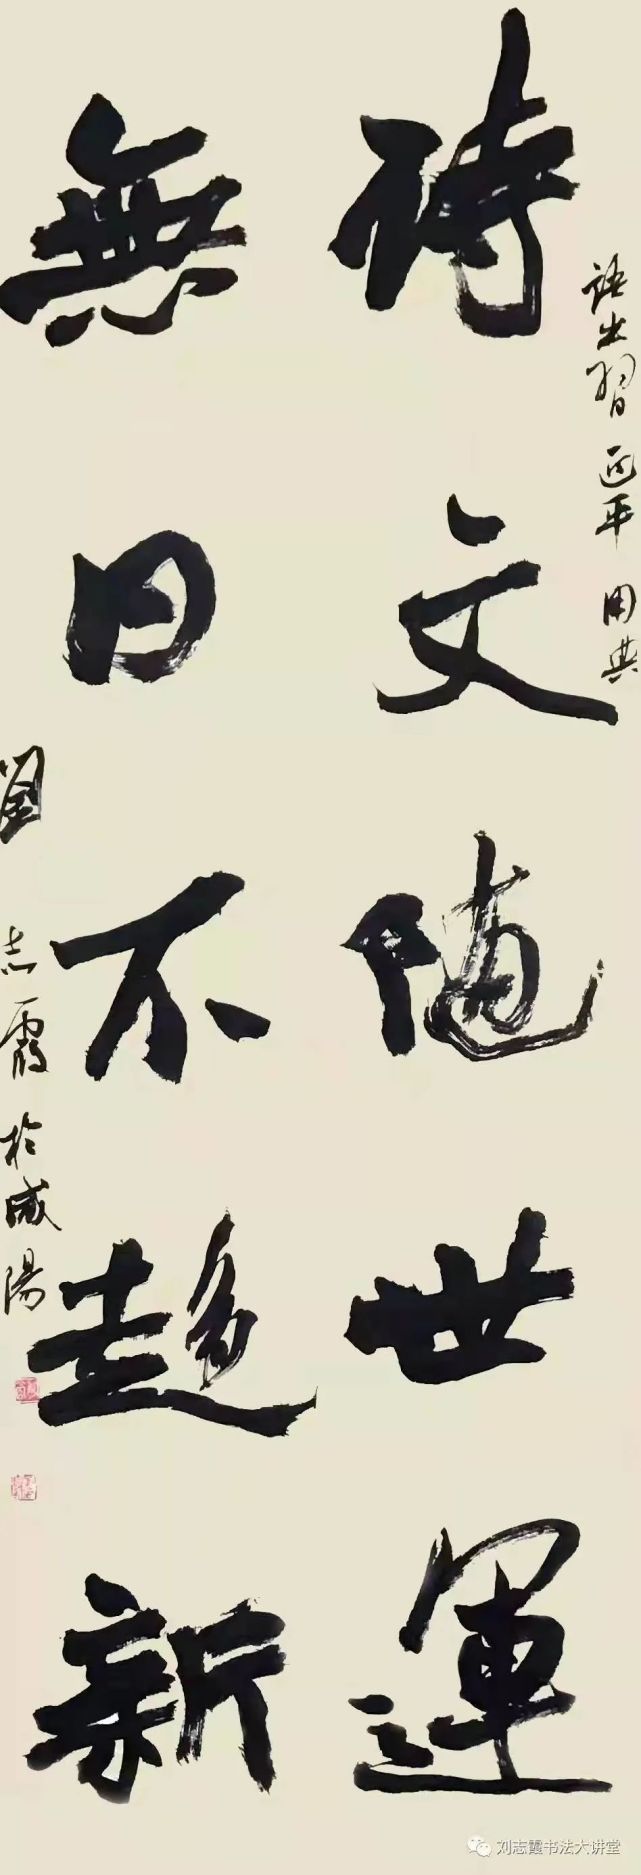 語出習近平用典
詩文隨世運
無日不趨新
劉志霞於咸陽
刘志霞书法大讲堂